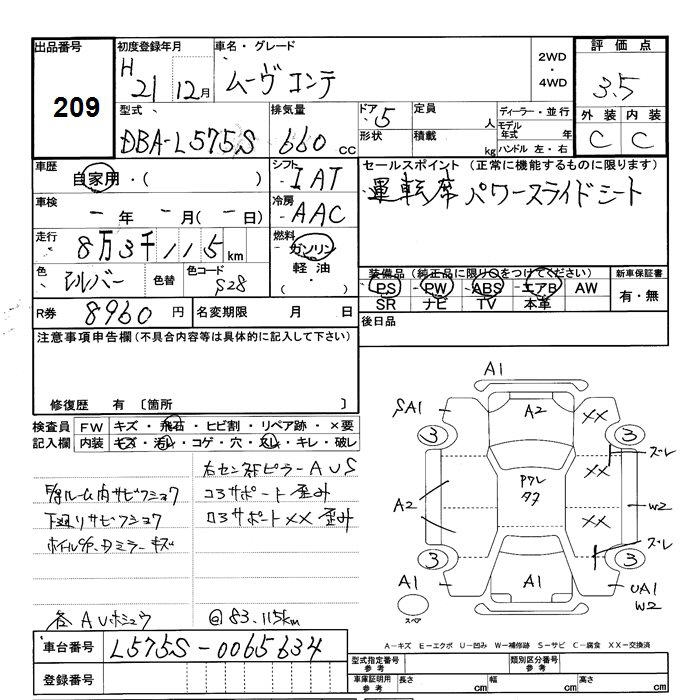 出品番号
209
初度登録年月
H 21 12月
車名・グレード
ムーヴ コンテ
2WD
・
4WD
評価点
3.5
外装 内装
C C
型式
DBA-L575S
排気量
660 CC
ドア 5
形状
定員 人
積載 kg
ディーラー・並行
モデル年式 年
ハンドル 左・右
車歴
自家用・( )
シフト
IAT
セールスポイント (正常に機能するものに限ります)
運転席 パワースライドシート
車検
- 年 - 月(- 日)
冷房
AAC
走行
8万3千115km
燃料
ガソリン
軽油
( ・ )
色
シルバー
色替
色コード
S28
装備品 (純正品に限り○をつけてください)
PS PW ABS エアB AW
SR ナビ TV 本革
新車保証書
有・無
R券 8960 円
名変期限 月 日
後日品
注意事項申告欄(不具合内容等は具体的に記入して下さい)
修復歴 有 〔箇所 〕
検査員
記入欄
FW キズ・飛石・ヒビ割・リペア跡・×要
内装 キズ・汚レ・コゲ・穴・スレ・キレ・破レ
右センターピラーAUS
ルーム内サビフショク
コアサポート歪み
下廻りサビフショク
ロアサポートXX歪み
ミラーキズ
各AU
@83.115km
A1
A2
SA1
XX
3
3
ズレ
A2
XX
W2
ズレ
3
3
A1
A1
UA1
W2
スペア
A-キズ E-エクボ U-凹み W-補修跡 S-サビ C-腐食 XX-交換済
車台番号 L575S-0065634
登録番号
型式指定番号
参考
類別区分番号
参考
車庫証明用
参考
長さ cm
幅 cm
高さ cm